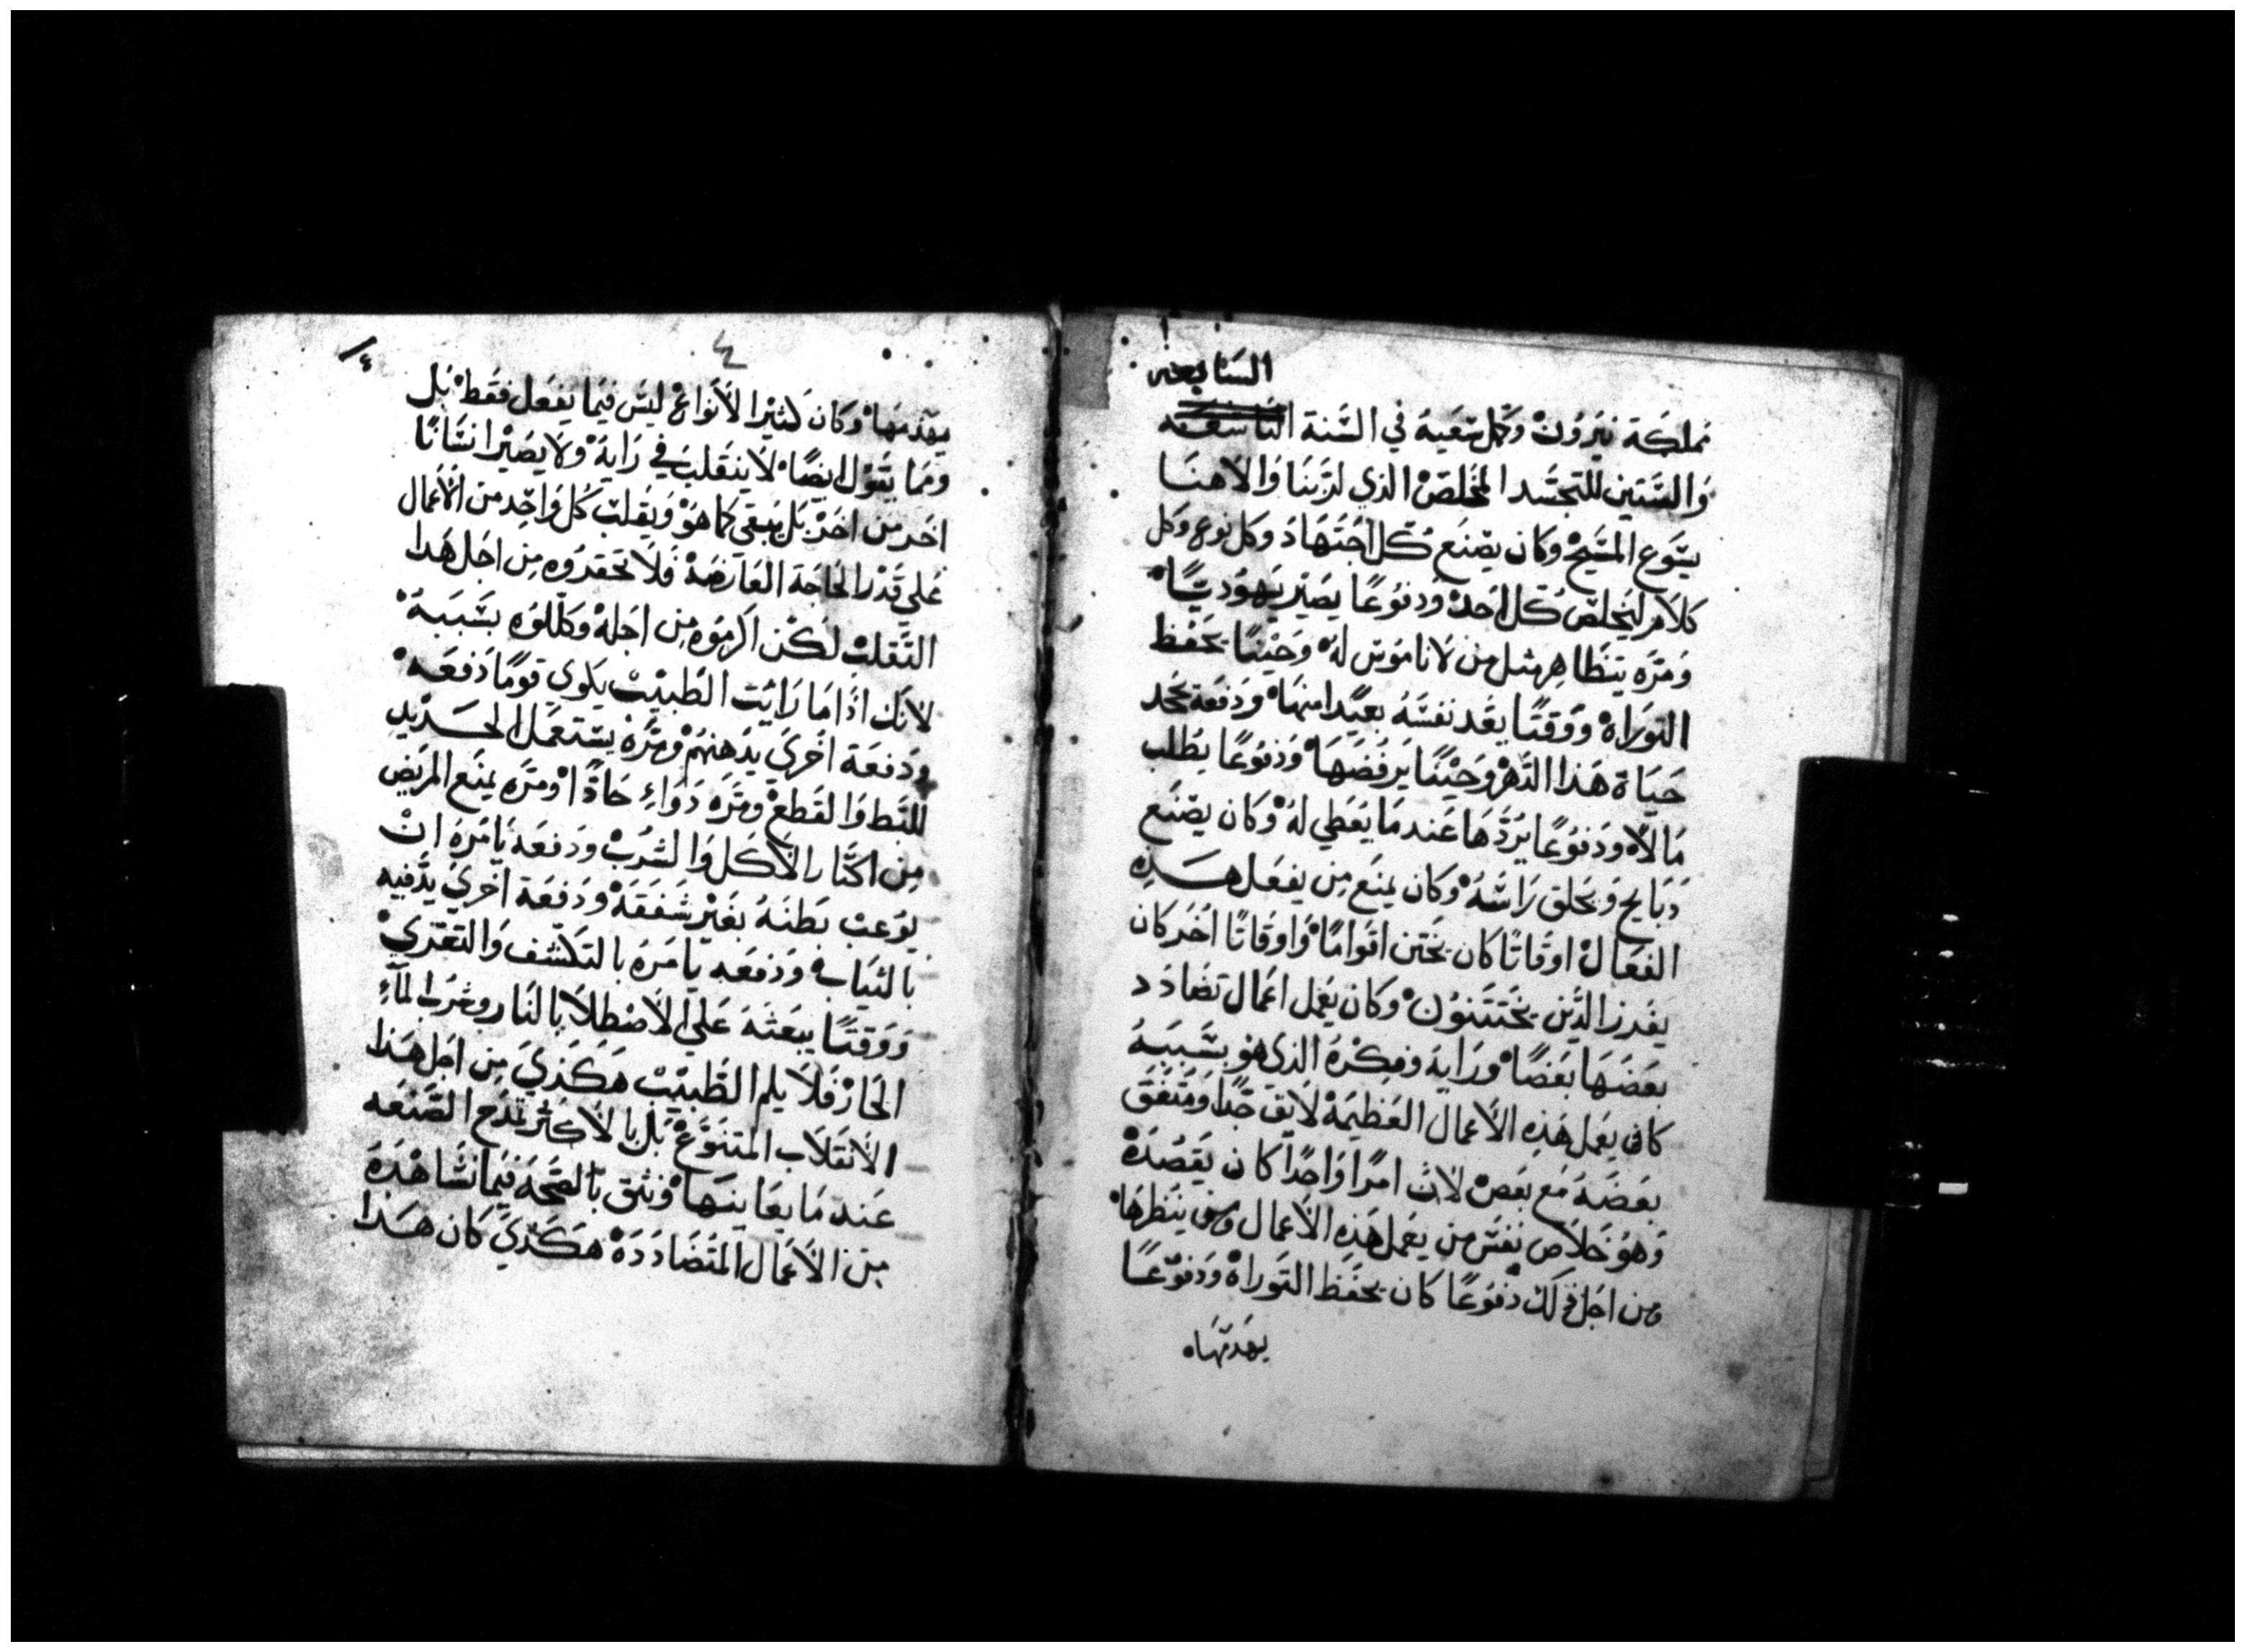 السابعه
مملكة نيرون وكمل سعيه في السنة التاسعه
والستين للتجسد المخلص الذي لربنا والاهنا
يسوع المسيح وكان يصنع كل اجتهاد وكل نوع وكل
كلام ليخلص كل احد ودفوعًا يصير يهوديًا
ومره يتظاهر مثل من لا ناموس له وحينًا يحفظ
التوراه ووقتًا يعد نفسه بعيدا منها ودفعة يجد
حياة هذا الدهر وحينًا يرفضها ودفوعًا يطلب
مالاً ودفوعًا يردها عند ما يعطي له وكان يصنع
دبايح ويحلق راسه وكان يمنع من يفعل هذه
الفعال اوقاتًا كان يختن اقوامًا واوقاتًا اخر كان
يفرز الذين يختتنون وكان يعمل اعمال تضادد
بعضها بعضًا ورايه وفكره الذي هو بسببه
كان يعمل هذه الاعمال العظيمة لايق جدًا ومتفق
بعضه مع بعض لان امرًا واحدًا كان يقصده
وهو خلاص نفس من يعمل هذه الاعمال ومن ينظرها
ومن اجل ذلك دفوعًا كان يحفظ التوراه ودفوعًا
يهدمها
٤
يهدمها وكان كثير الانواع ليس فيما يفعل فقط بل
ومما يقول ايضًا لا ينقلب في رايه ولا يصير انسانًا
اخر من اخر بل يبقي كما هو ويقلب كل واحد من الاعمال
علي قدر الحاجة العارضة فلا تحقروه من اجل هدا
التقلب لكن اكرموه من اجله وكللوه بسببه
لانك اذا ما رايت الطبيب يكوي قومًا دفعه
ودفعة اخري يدهنهم ومرة يستعمل الحديد
للبط والقطع ومره دواءِ حادًا ومره يمنع المريض
من اكثار الاكل والشرب ودفعه يامره ان
يوعب بطنه بغير شفقه ودفعة اخري يدفيه
بالثياب ودفعه يامره بالتكشف والتعري
ووقتًا يبعثه علي الاصطلا بالنار وشرب المآءِ
الحار فلا يلم الطبيب هكذي من اجل هذا
الانقلاب المتنوع بل بالاكثر تمدح الصنعه
عند ما يعاينها ونثق بالصحه فيما نشاهده
من الاعمال المتضادده هكذي كان هذا